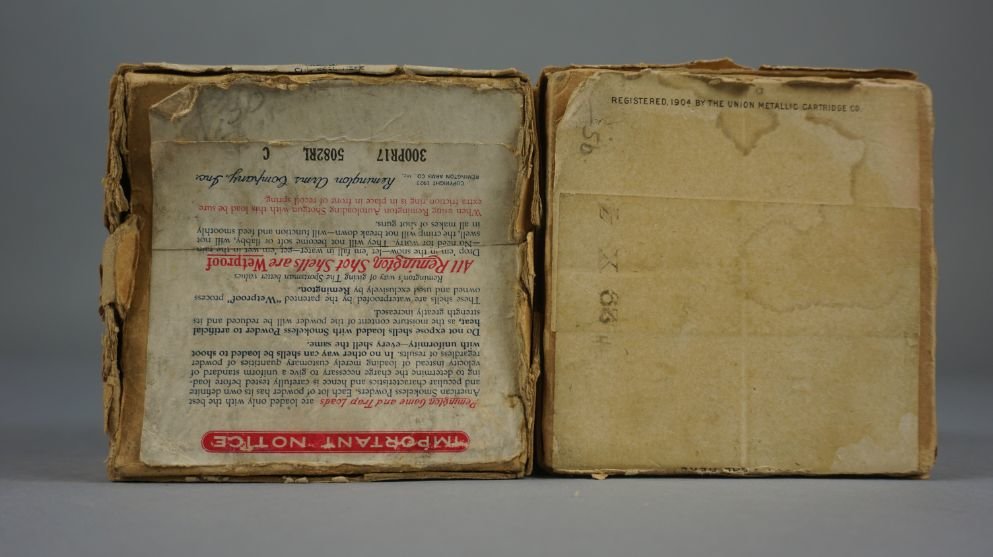 IMPORTANT NOTICE
Remington Game and Trap Loads are loaded only with the best
American Smokeless Powders. Each lot of powder has its own definite
and peculiar characteristics and hence is carefully tested before load-
ing to determine the charge necessary to give a uniform standard of
velocity instead of loading merely customary quantities of powder
regardless of results. In no other way can shells be loaded to shoot
with uniformity—every shell the same.
Do not expose shells loaded with Smokeless Powder to artificial
heat, as the moisture content of the powder will be reduced and its
strength greatly increased.
These shells are waterproofed by the patented "Wetproof" process
owned and used exclusively by Remington.
Remington's way of giving The Sportsman better values
All Remington Shot Shells are Wetproof
Drop 'em in the snow—let 'em fall in water—get 'em wet in the rain
—No need for worry. They will not become soft or flabby, will not
swell, the crimp will not break down—will function and feed smoothly
in all makes of shot guns.
When using Remington Autoloading Shotgun with this load be sure
extra friction ring is in place in front of recoil spring
COPYRIGHT 1923
REMINGTON ARMS CO. INC. Remington Arms Company, Inc.
300PR17 5082RL C
REGISTERED, 1904 BY THE UNION METALLIC CARTRIDGE CO.
50